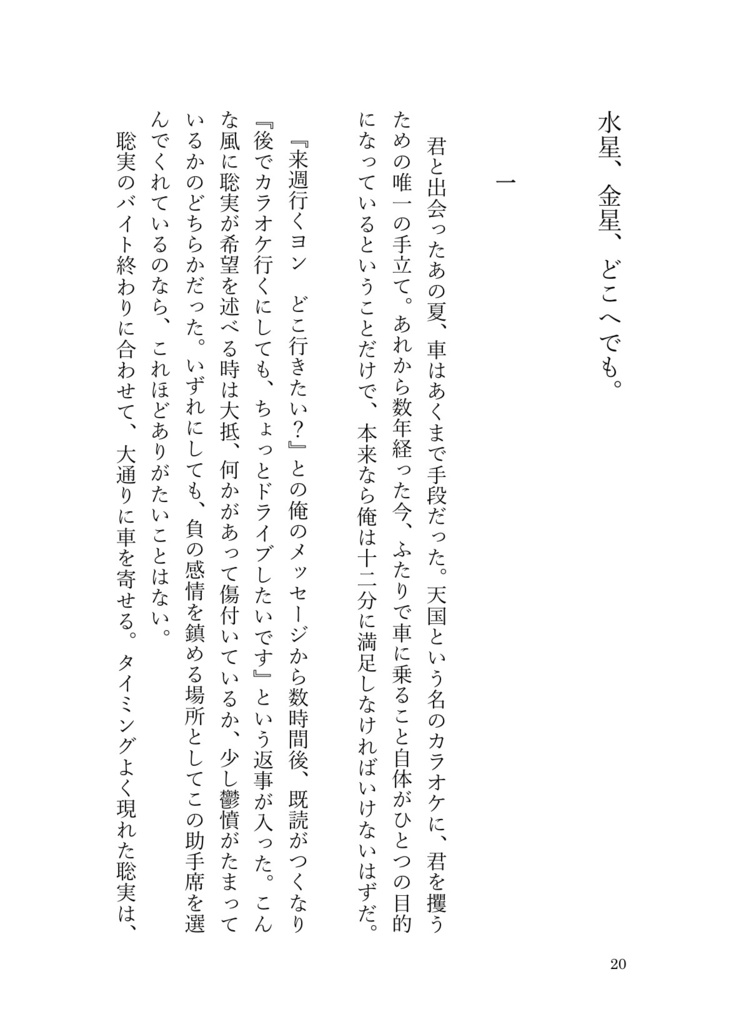 水星、金星、どこへでも。
一
君と出会ったあの夏、車はあくまで手段だった。天国という名のカラオケに、君を攫う
ための唯一の手立て。あれから数年経った今、ふたりで車に乗ること自体がひとつの目的
になっているということだけで、本来なら俺は十二分に満足しなければいけないはずだ。
『来週行くヨン　どこ行きたい？』との俺のメッセージから数時間後、既読がつくなり
『後でカラオケ行くにしても、ちょっとドライブしたいです』という返事が入った。こん
な風に聡実が希望を述べる時は大抵、何かがあって傷付いているか、少し鬱憤がたまって
いるかのどちらかだった。いずれにしても、負の感情を鎮める場所としてこの助手席を選
んでくれているのなら、これほどありがたいことはない。
聡実のバイト終わりに合わせて、大通りに車を寄せる。タイミングよく現れた聡実は、
20